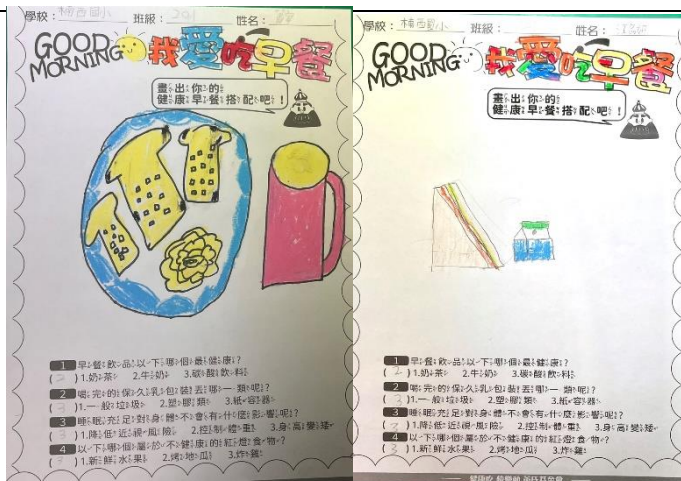 學校：楊西國小 班級：201 姓名：
GOOD MORNING 我愛吃早餐
畫出你的
健康早餐搭配吧！
1 早餐飲品以下哪個最健康？
(2) 1.奶茶 2.牛奶 3.碳酸飲料
2 喝完的保久乳包裝丟哪一類呢？
(3) 1.一般垃圾 2.塑膠類 3.紙容器
3 睡眠充足對身體不會有什麼影響呢？
(3) 1.降低近視風險 2.控制體重 3.身高變矮
4 以下哪個屬於不健康的紅燈食物？
(3) 1.新鮮水果 2.烤地瓜 3.炸雞
學校：楊西國小 班級： 姓名：
GOOD MORNING 我愛吃早餐
畫出你的
健康早餐搭配吧！
1 早餐飲品以下哪個最健康？
(2) 1.奶茶 2.牛奶 3.碳酸飲料
2 喝完的保久乳包裝丟哪一類呢？
(3) 1.一般垃圾 2.塑膠類 3.紙容器
3 睡眠充足對身體不會有什麼影響呢？
(3) 1.降低近視風險 2.控制體重 3.身高變矮
4 以下哪個屬於不健康的紅燈食物？
(3) 1.新鮮水果 2.烤地瓜 3.炸雞